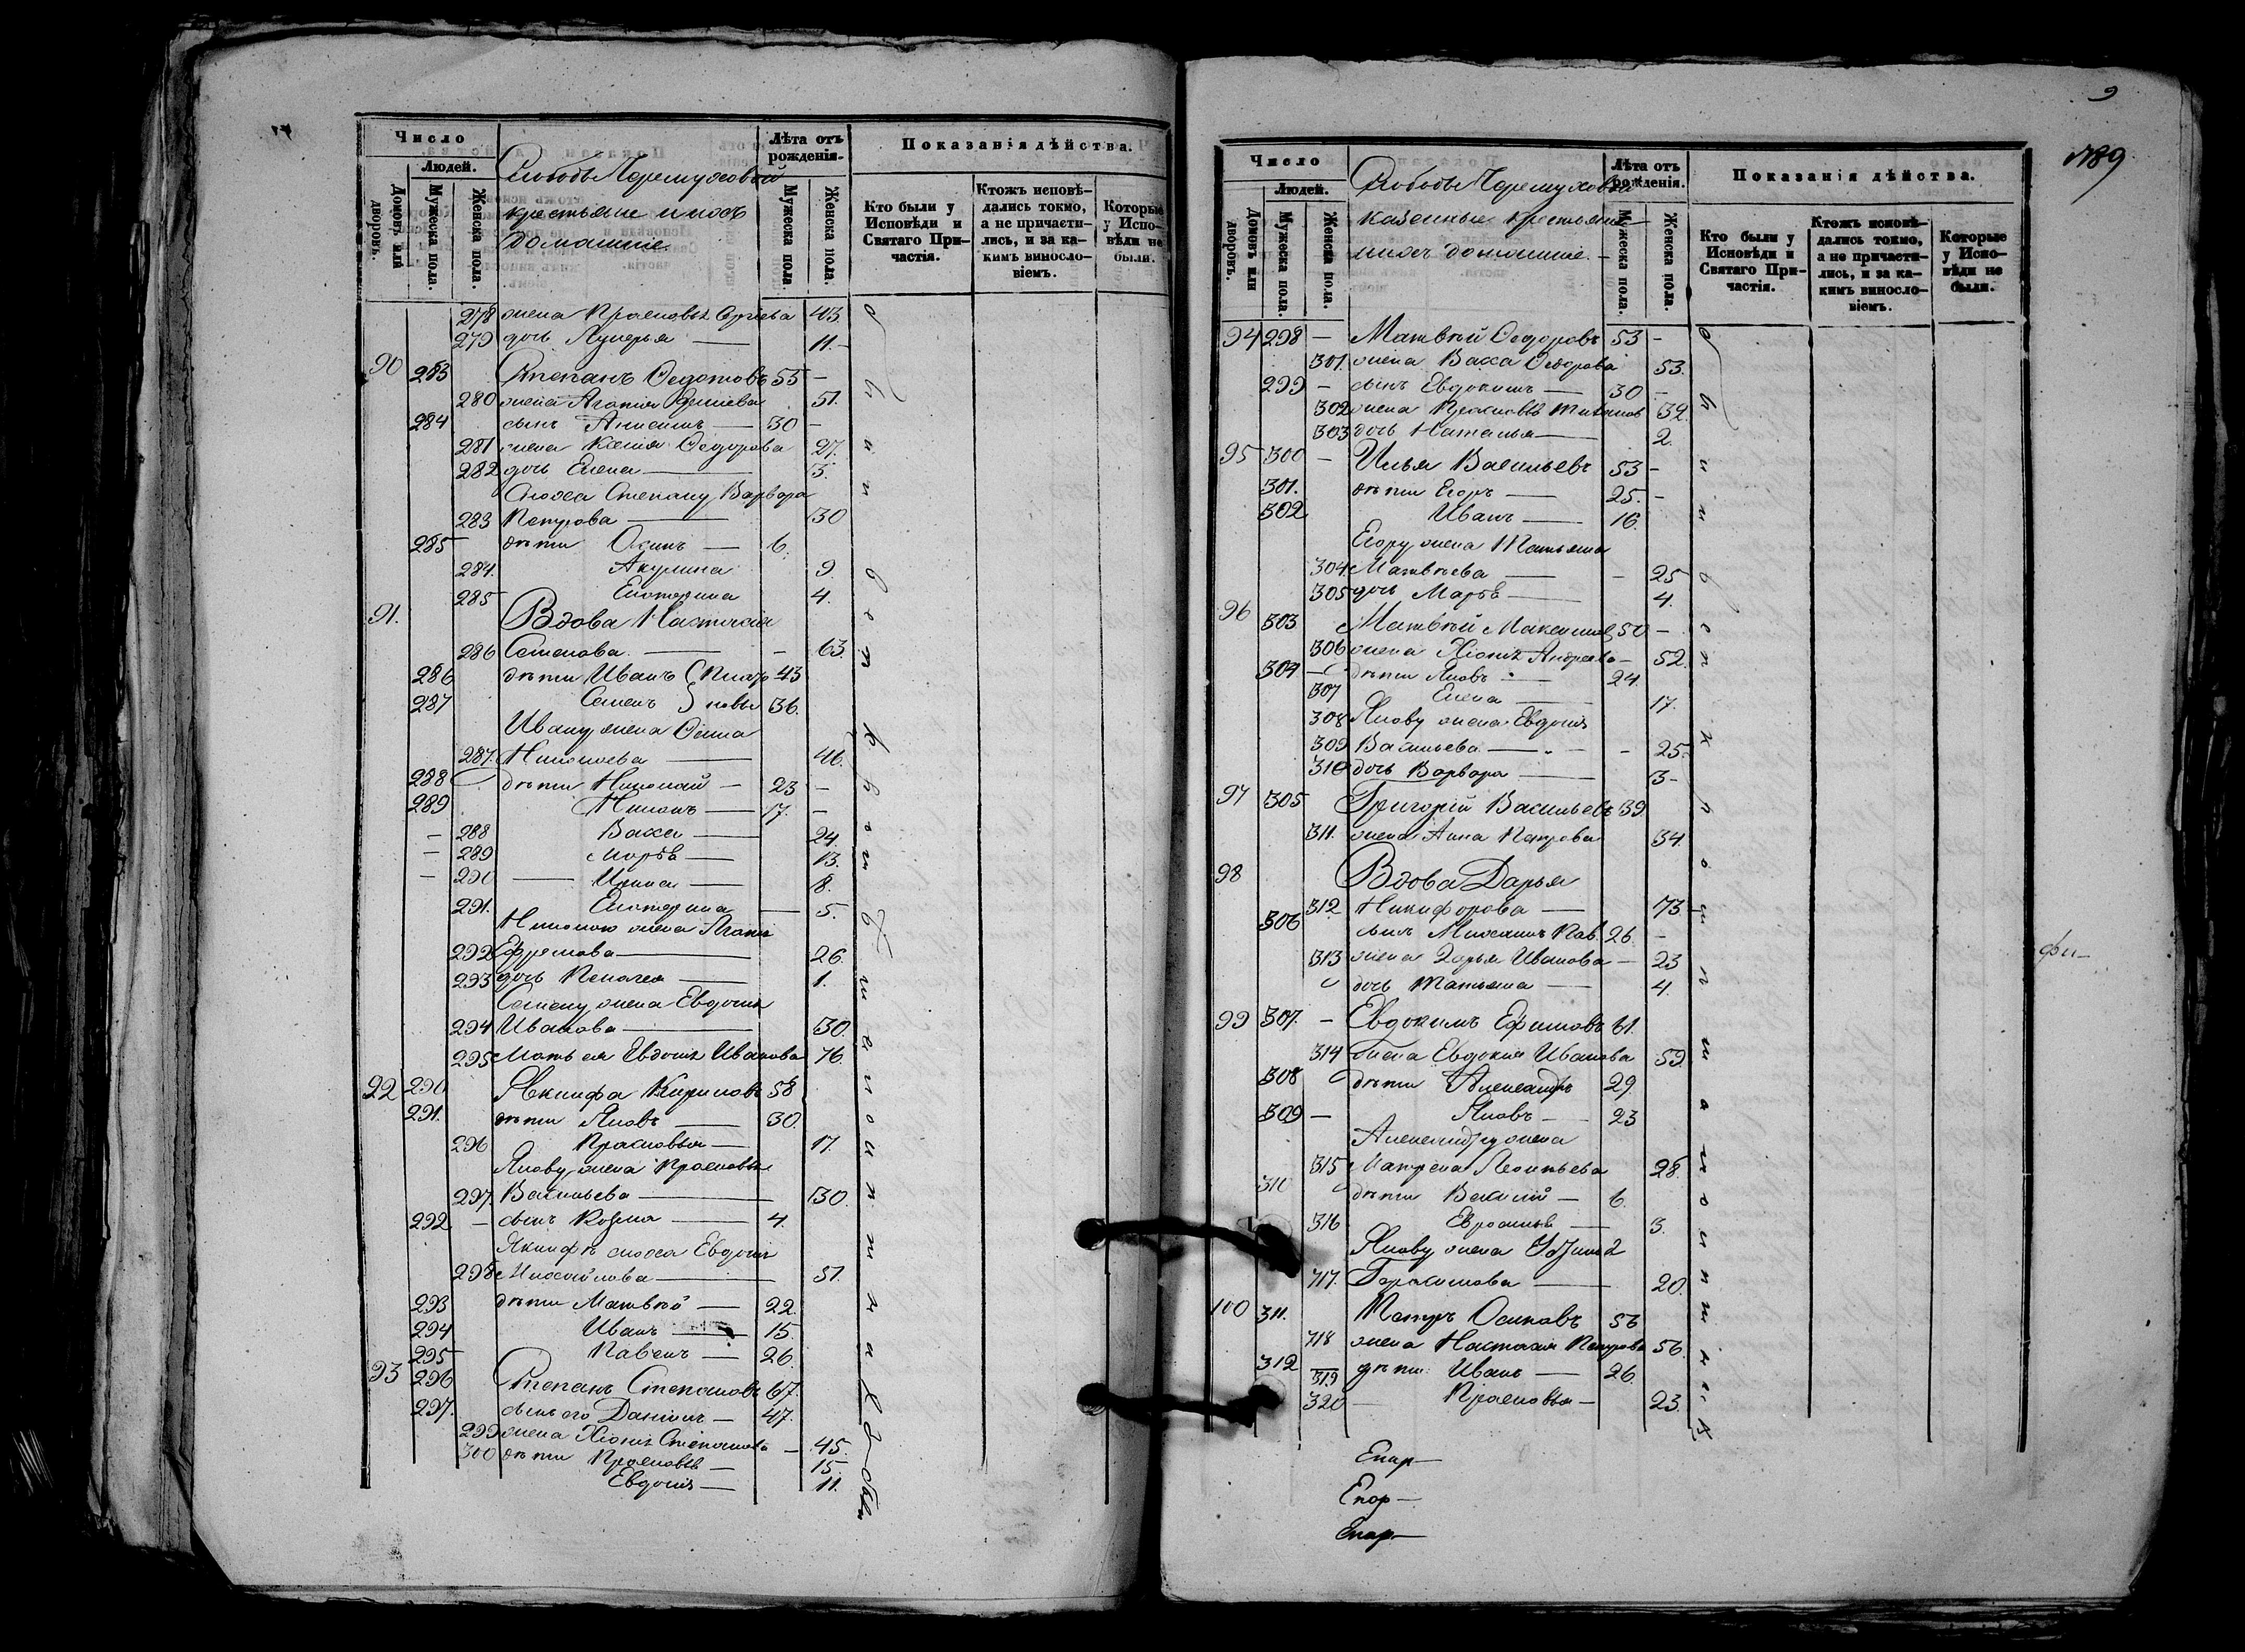 Число
Людей.
Домовъ или дворовъ.
Мужеска пола.
Женска пола.
Слободы Черемуховой
крестьяне и ихъ
домашніе.
Лѣта отъ рожденія.
Мужеска пола.
Женска пола.
Показанія дѣйства.
Кто были у Исповѣди и Святаго Причастія.
Ктожъ исповѣдались токмо, а не причастились, и за какимъ винословіемъ.
Которые у Исповѣди не были.
278 жена Прасковья 43.
279 дочь Лукерья 11.
90 283 Степанъ Федотовъ 55
280 жена Агафія 51.
284 сынъ Анисимъ 30
281 жена Ксенія Федорова 27.
282 дочь Елена 3.
Сноха Степану Варвара
283 Петрова 30
285 дѣти Осипъ 6.
284. Акулина 9.
285 Екатерина 4.
91. Вдова Настасія
286 Семенова 63.
286 дѣти Иванъ 43
287 Семенъ 36.
Ивану жена
287. 46.
288 дѣти Николай 23
289 17.
288 Васса 24.
289 Марѳа 13.
290 Ирина 8.
291. Екатерина 5.
Николаю жена
292 Ефремова 26.
293 дочь Пелагея 1.
Семену жена Евдокія
294 Иванова 30.
295 Мать ея Евдокія Иванова 76.
92 290 Якинфа Кириловъ 58
291. дѣти Яковъ 30.
296 Прасковья 17.
Якову жена Прасковья
297. Васильева 30.
292 сынъ Козма 4.
Якинфъ сноха Евдокія
298 Михайлова 51.
293 дѣти Матвѣй 22.
294 Иванъ 15.
295 Павелъ 26.
93 296 Степанъ Степановъ 67.
297. сынъ его Даніилъ 47.
299 жена Хіонія Степанова 45.
300 дѣти Прасковья 15.
Евдокія 11.
9
789
Число
Людей.
Домовъ или дворовъ.
Мужеска пола.
Женска пола.
Слободы Черемуховой
казенные крестьяне
и ихъ домашніе.
Лѣта отъ рожденія.
Мужеска пола.
Женска пола.
Показанія дѣйства.
Кто были у Исповѣди и Святаго Причастія.
Ктожъ исповѣдались токмо, а не причастились, и за какимъ винословіемъ.
Которые у Исповѣди не были.
94 298 Матвѣй Федоровъ 53
301. жена Васса Федорова 53.
299 сынъ Евдокимъ 30
302 жена Прасковья 32.
303 дочь Наталья 2.
95 300 Илья Васильевъ 53
301. дѣти Егоръ 25.
302 Иванъ 16.
Егору жена Татьяна
304 Матвѣева 25
305 дочь Марѳа 4.
96 303 Матвѣй Максимовъ 50
306 жена Хіонія Андреева 52.
304 дѣти Яковъ 24.
307 Елена 17.
308 Якову жена Евдокія
309 Васильева 25.
310 дочь Варвара 3
97 305 Григорій Васильевъ 39
311. жена Анна Петрова 34.
98 Вдова Дарья
312 Никифорова 73
306 сынъ Михаилъ Пав. 26.
313 жена Дарья Иванова 23
дочь Татьяна 4.
99 307. Евдокимъ Ефимовъ 61.
314 жена Евдокія Иванова 59.
308 дѣти Александръ 29.
309 Яковъ 23
Александру жена
315 Матрена Леонтьева 28.
310 дѣти Василій 6.
316 3.
Якову жена
717. Герасимова 20.
100 311. Петръ Осиповъ 56
718 жена Настасія Петрова 56.
312 дѣти Иванъ 26.
319
320 Прасковья 23.
Епар
Епар
Епар